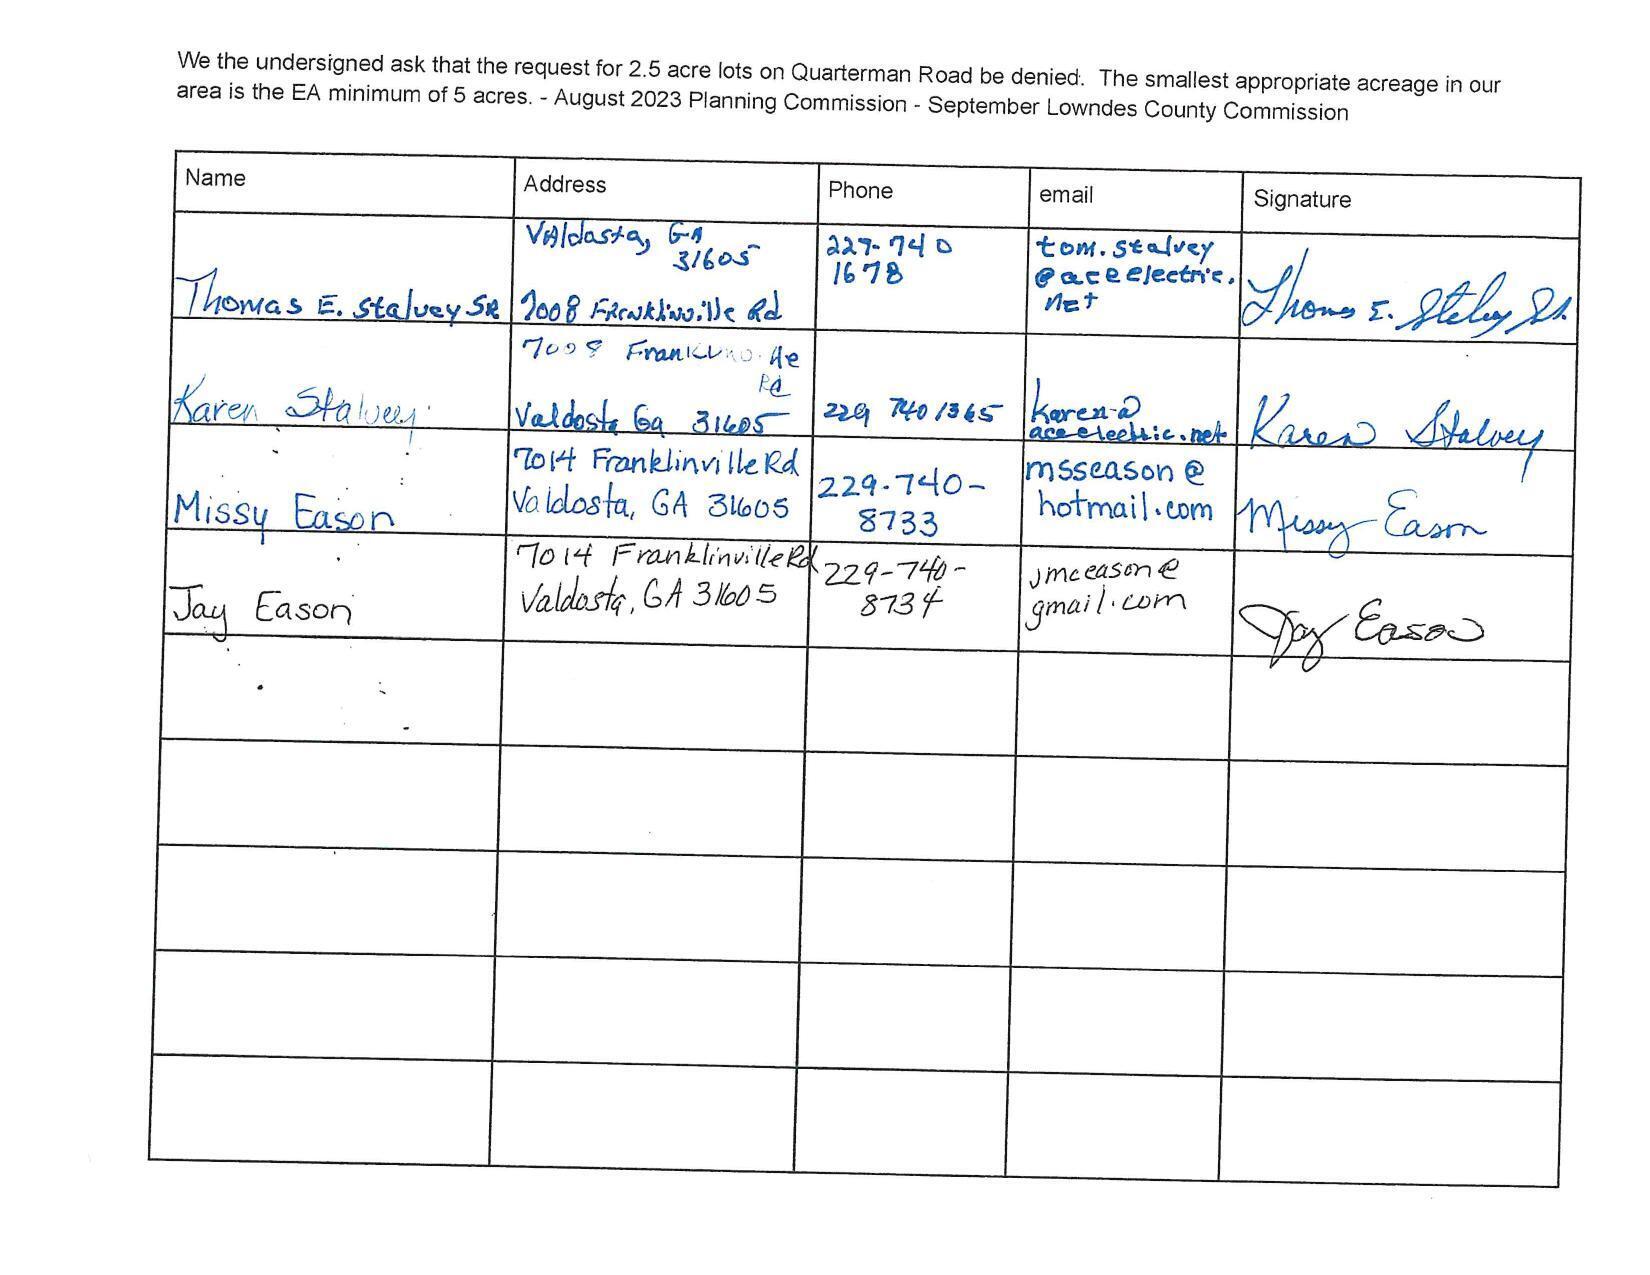 We the undersigned ask that the request for 2.5 acre lots on Quarterman Road be denied. The smallest appropriate acreage in our
area is the EA minimum of 5 acres. - August 2023 Planning Commission - September Lowndes County Commission
Name Address Phone email Signature
Valdosta, GA
31605
7008 Franklinville Rd
Thomas E. Stalvey SR
229-740
1678
tom.stalvey
@aceelectric.
net
Thomas E. Stalvey Sr.
7008 Franklinville
Rd
Valdosta Ga 31605
Karen Stalvey
229 740 1365
karen@
aceelectric.net
Karen Stalvey
7014 Franklinville Rd
Valdosta, GA 31605
Missy Eason
229-740-
8733
msseason@
hotmail.com
Missy Eason
7014 Franklinville Rd
Valdosta, GA 31605
Jay Eason
229-740-
8734
jmceason@
gmail.com
Jay Eason